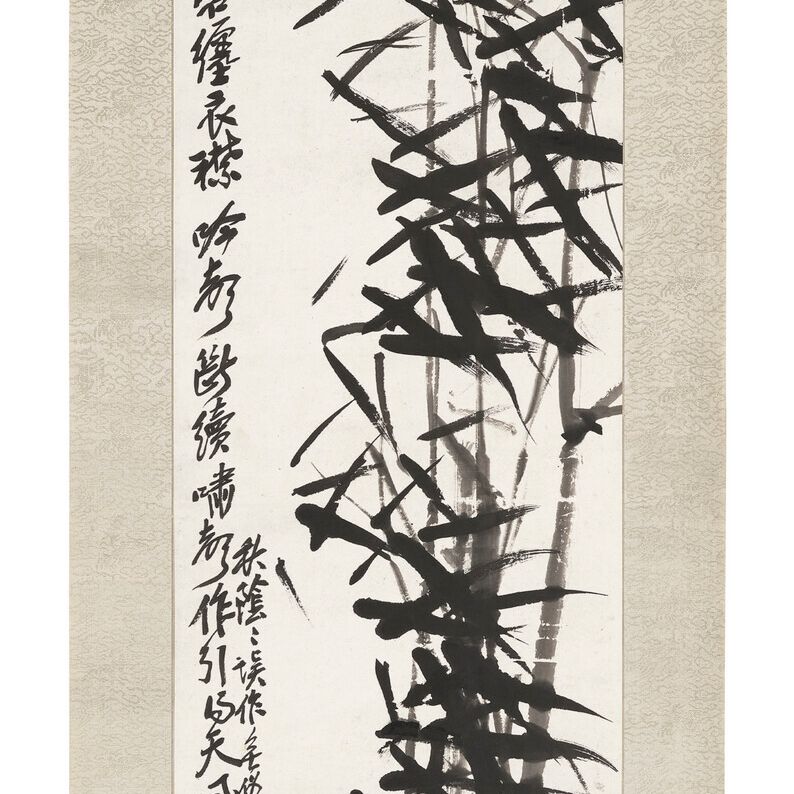 纏衣襟吟聲斷續嘯聲作引得天
秋陰〻誤作